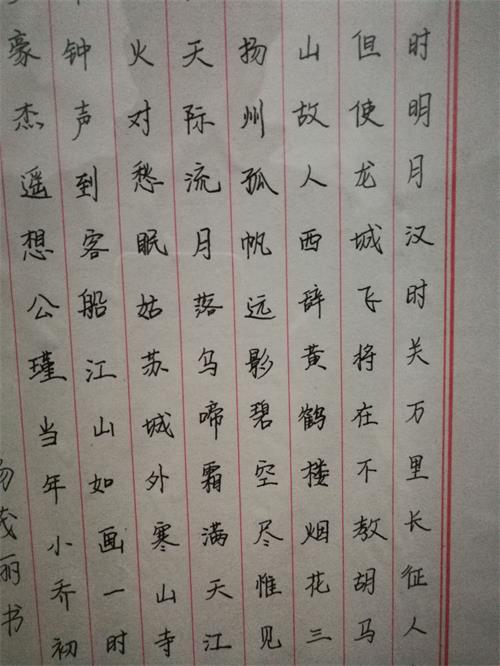 时明月汉时关万里长征人
但使龙城飞将在不教胡马
山故人西辞黄鹤楼烟花三
扬州孤帆远影碧空尽惟见
天际流月落乌啼霜满天江
火对愁眠姑苏城外寒山寺
钟声到客船江山如画一时
豪杰遥想公瑾当年小乔初
茂丽书